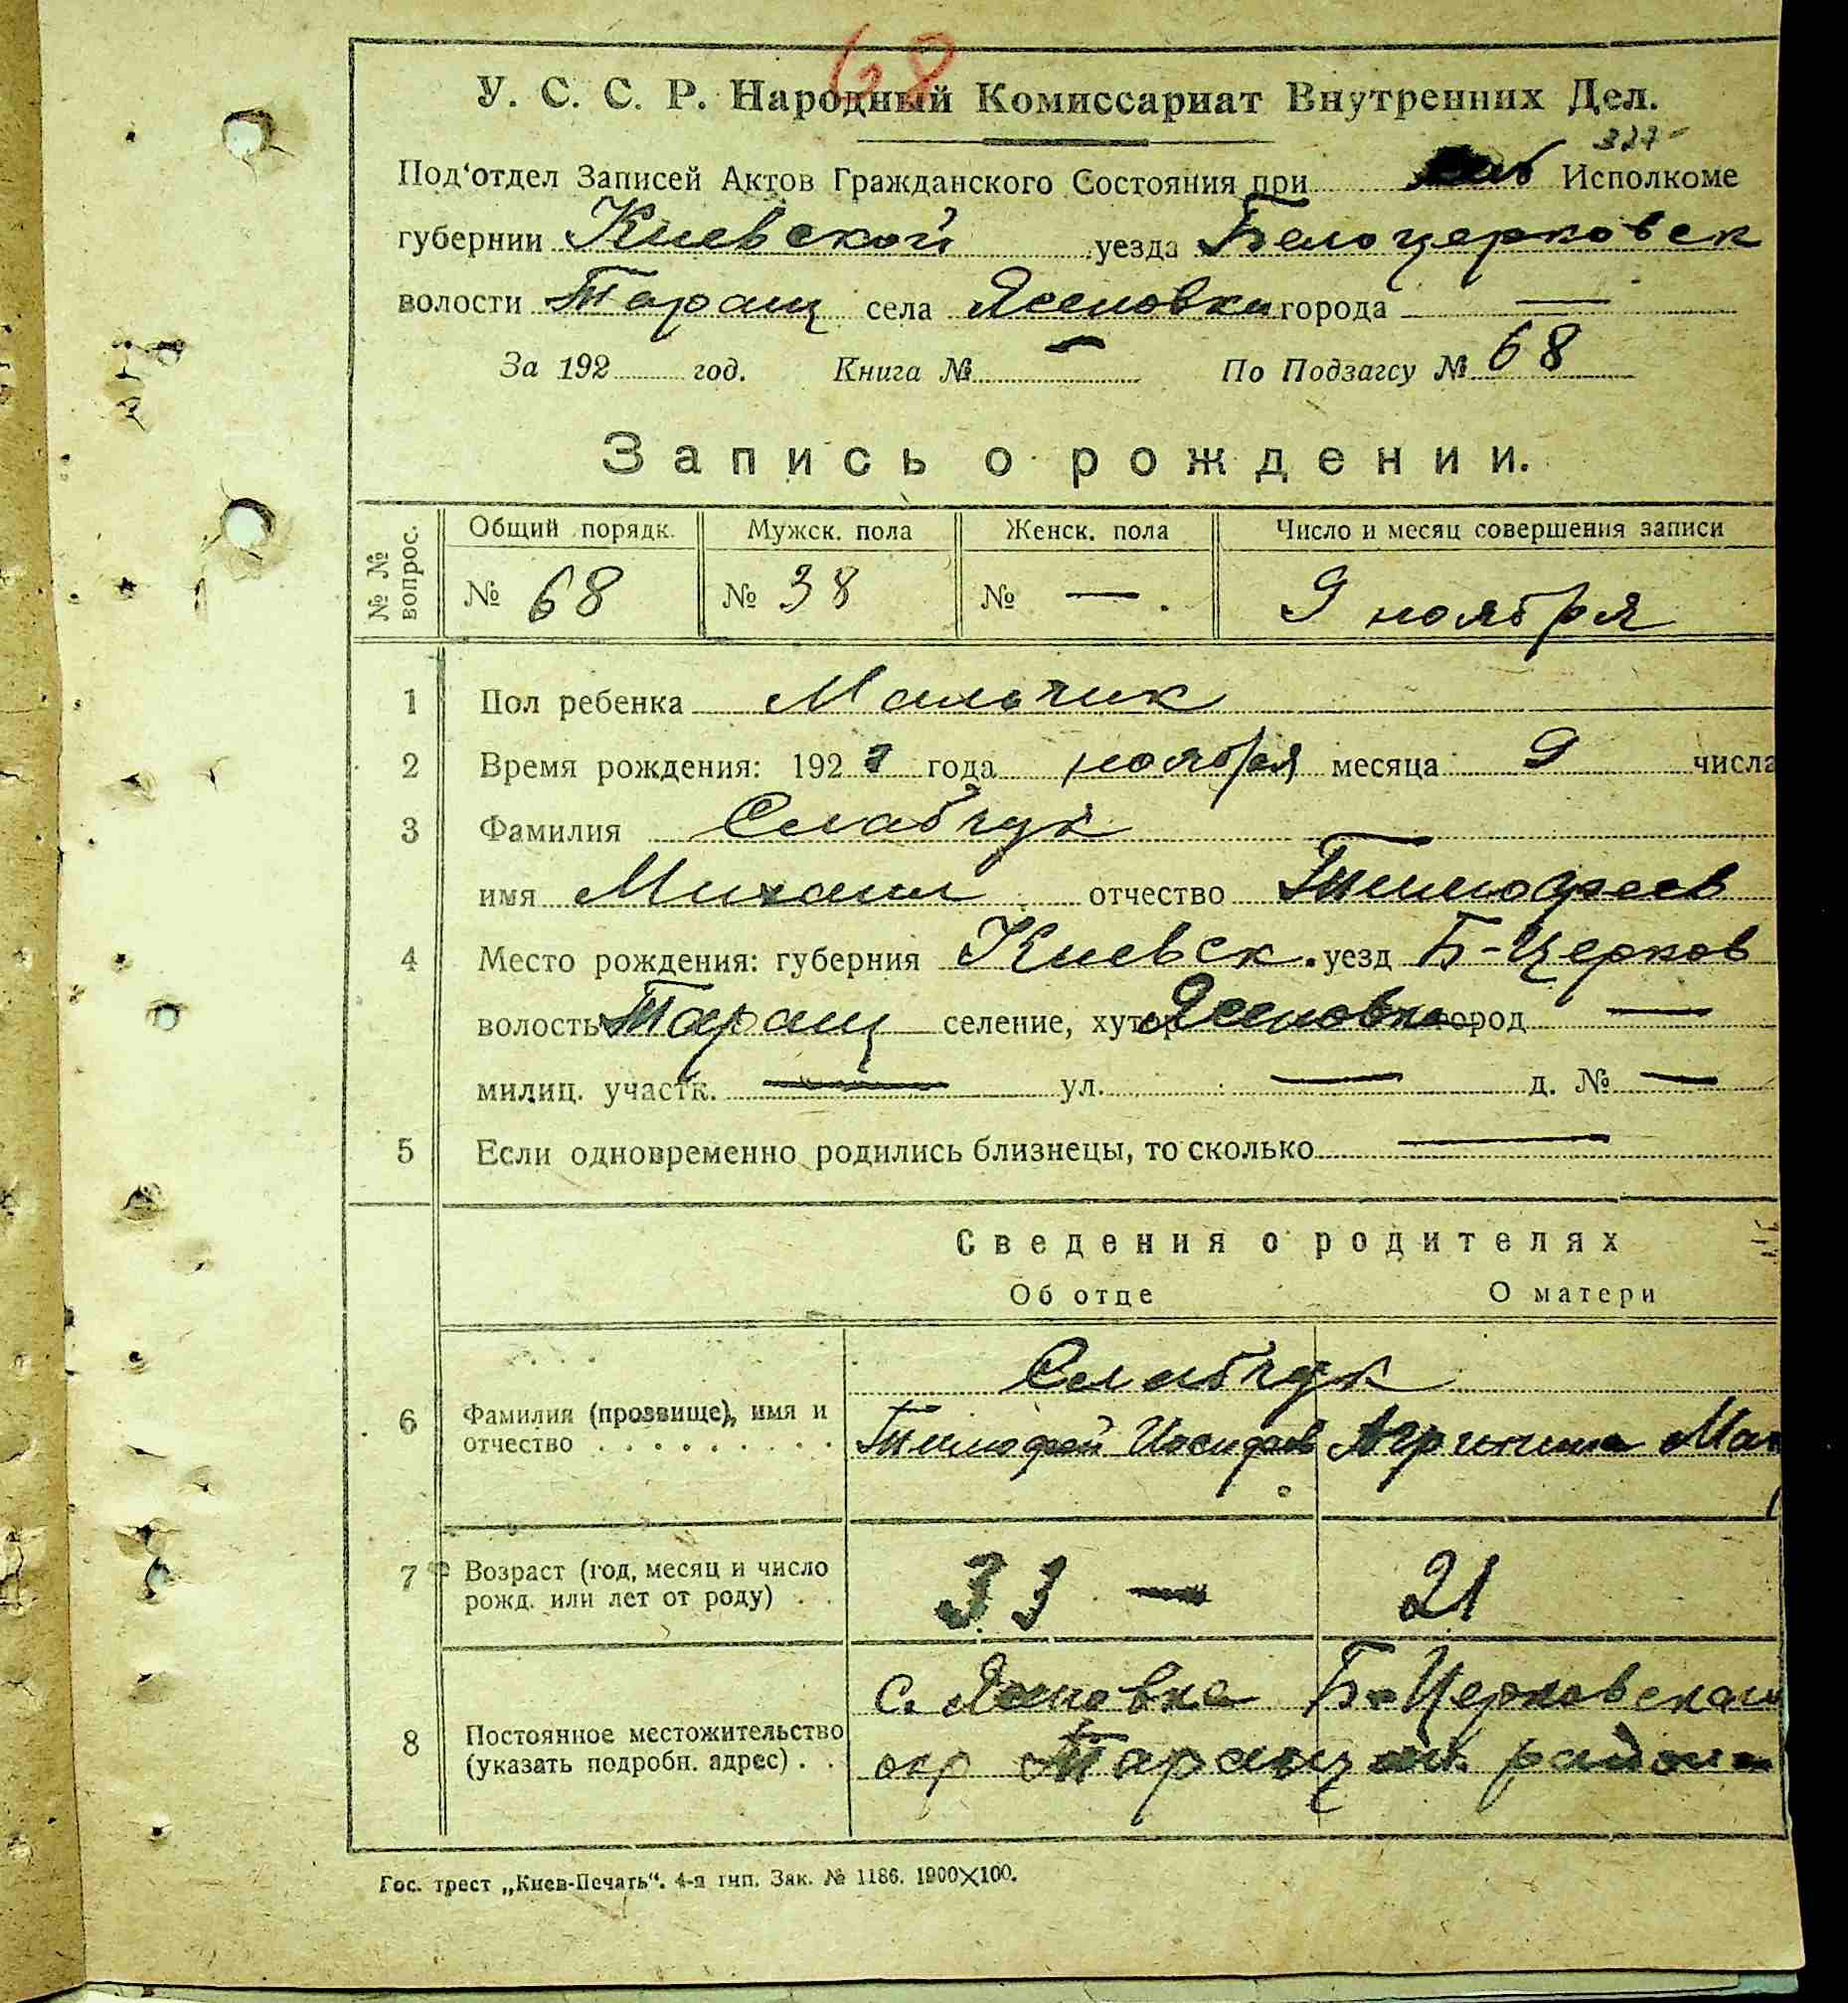 68
У. С. С. Р. Народный Комиссариат Внутренних Дел.
327
Под‘отдел Записей Актов Гражданского Состояния при Исполкоме
губернии Киевской уезда Белоцерковск
волости Таращ села Ясеновки города —
За 192 год. Книга № — По Подзагсу № 68
Запись о рождении.
№ № вопрос. Общий порядк. Мужск. пола Женск. пола Число и месяц совершения записи
№ 68 № 38 № —. 9 ноября
1 Пол ребенка Мальчик
2 Время рождения: 192 года ноября месяца 9 числа
3 Фамилия Слабчук
имя Михаил отчество Тимофеев
4 Место рождения: губерния Киевск. уезд Б-Церков
волость Таращ селение, хутор Ясеновка город —
милиц. участк. — ул. — д. № —
5 Если одновременно родились близнецы, то сколько —
Сведения о родителях
Об отце О матери
Слабчук
6 Фамилия (прозвище), имя и отчество Тимофей Иосифов Агрипина
7 Возраст (год, месяц и число рожд. или лет от роду) 33 — 21
8 Постоянное местожительство (указать подробн. адрес) с. Ясеновка Б-Церковского
окр Таращ района
Гос. трест „Киев-Печать“. 4-я тип. Зак. № 1186. 1900×100.